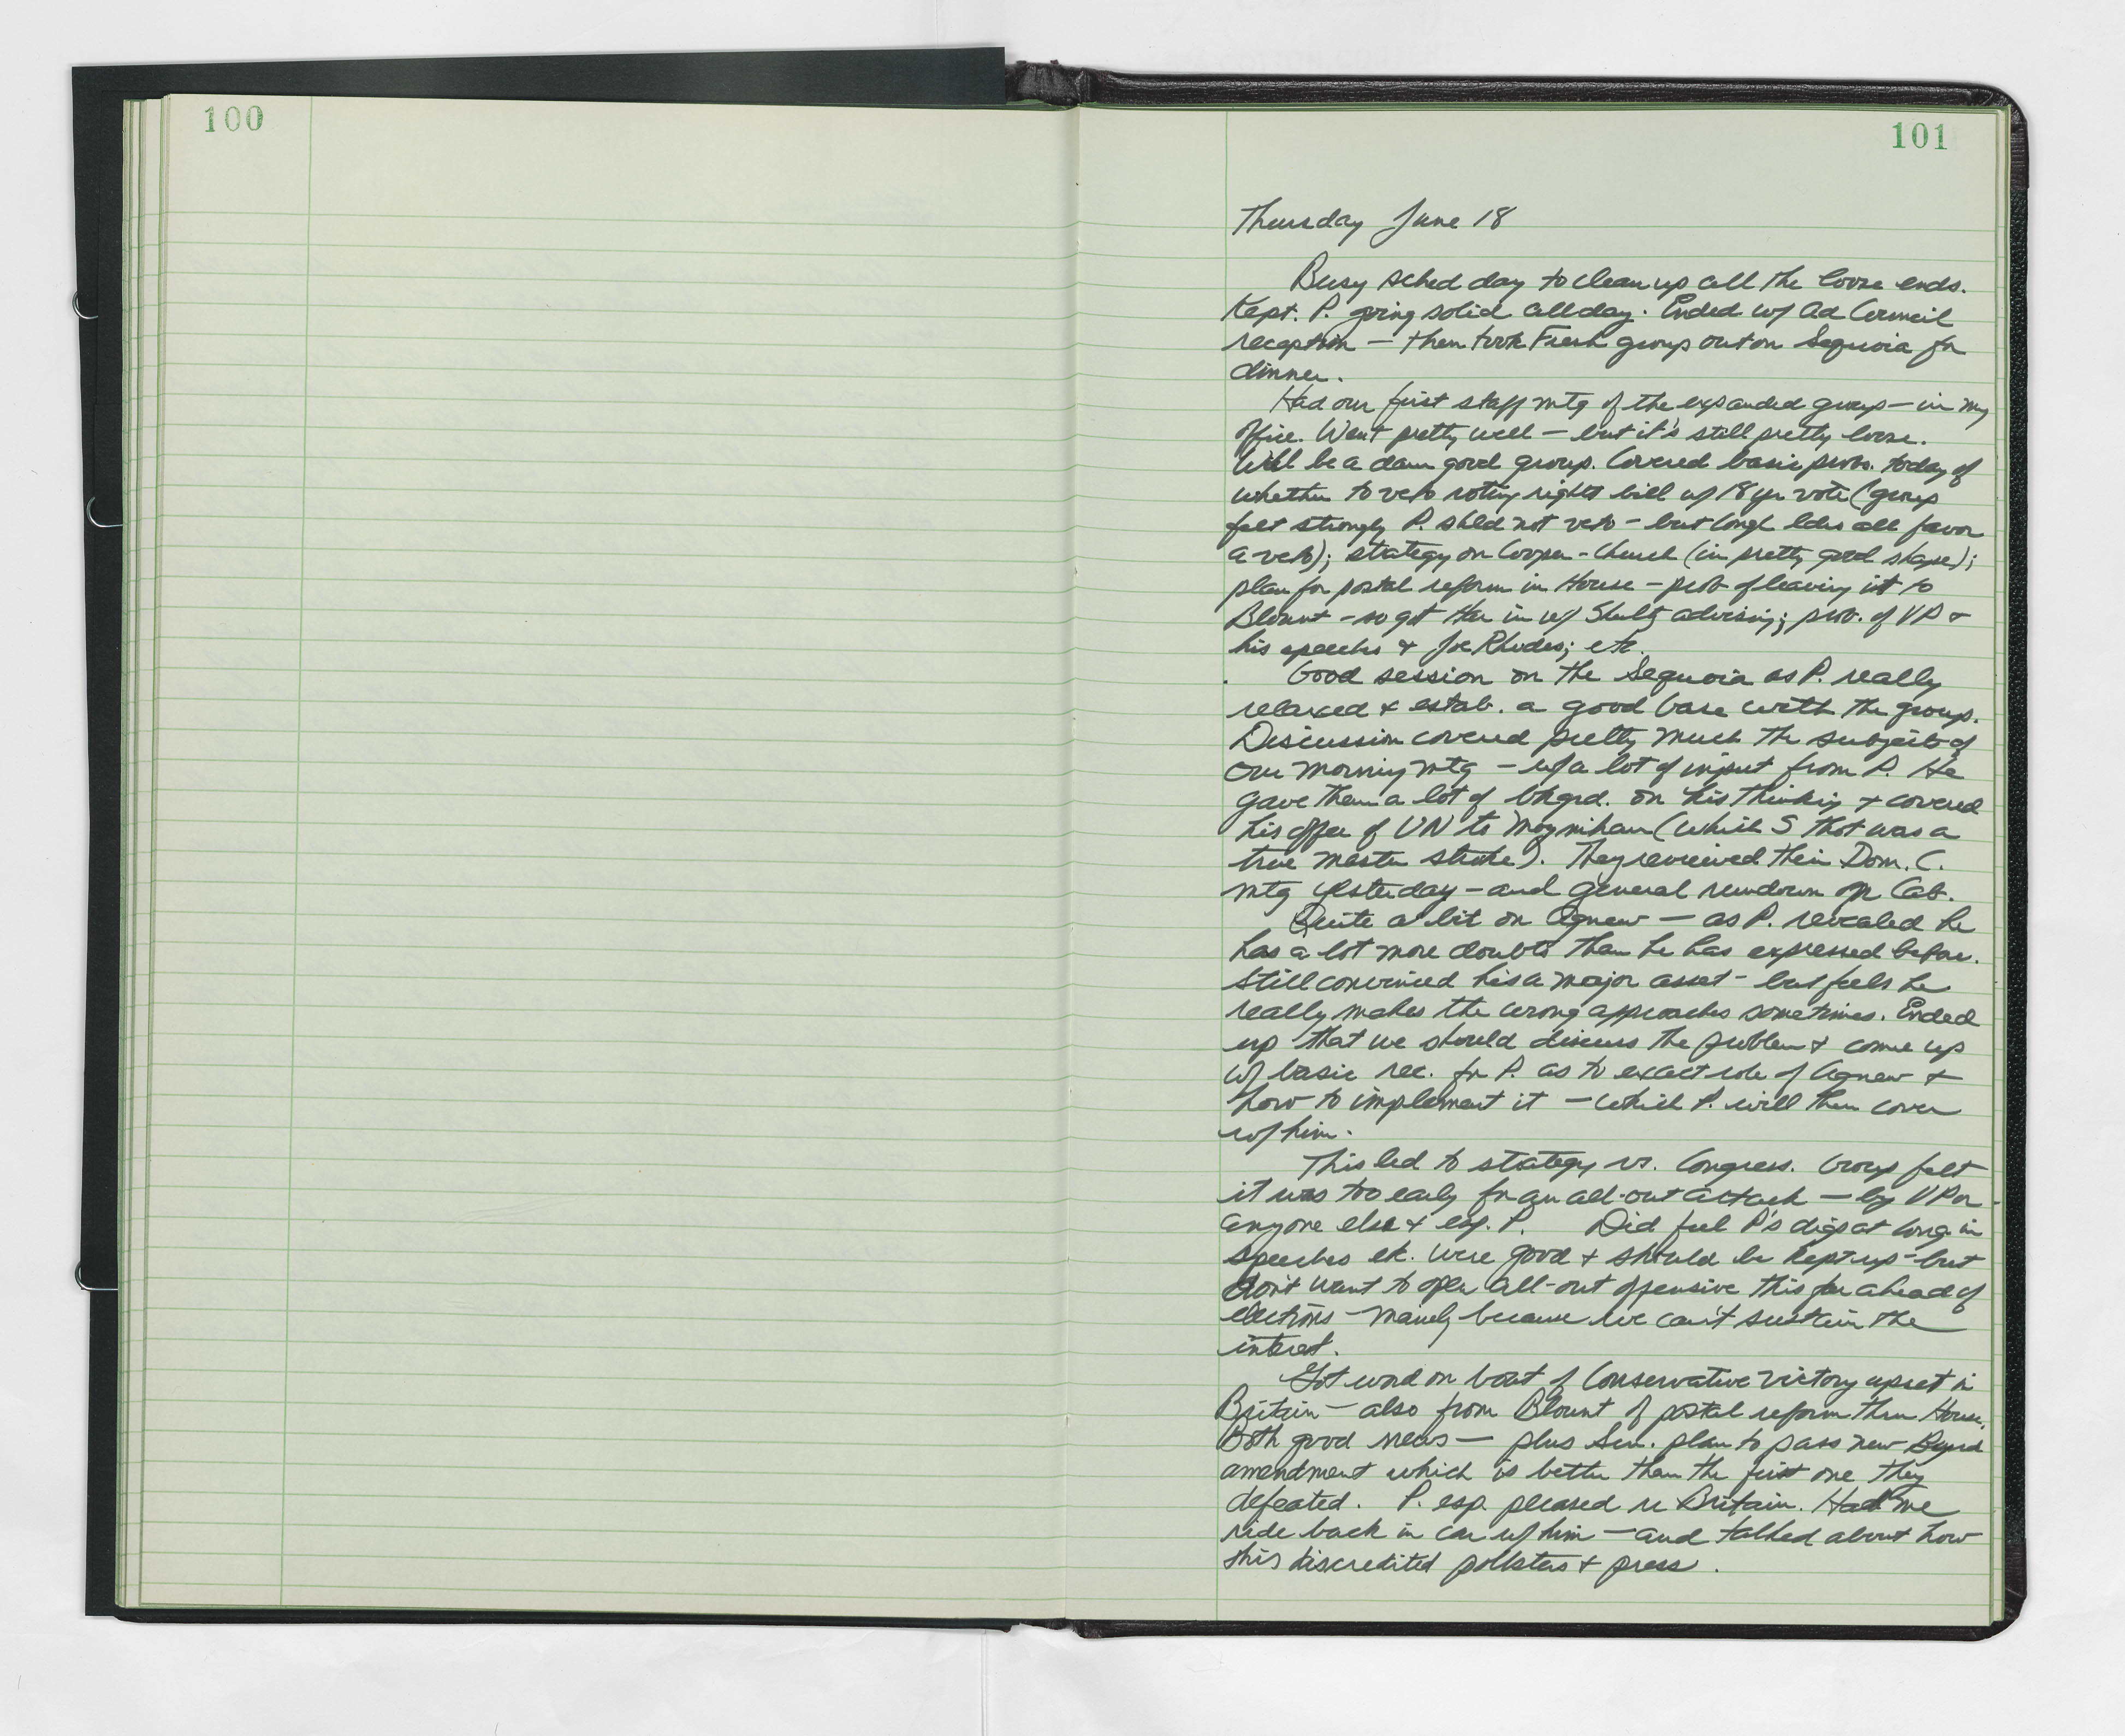 100
101
Thursday June 18
Busy sched day to clean up all the loose ends.
Kept. P. going solid all day. Ended w/ Ad Council
reception — then took Fresh group out on Sequoia for
dinner.
Had our first staff mtg of the expanded group — in my
office. Went pretty well — but it's still pretty loose.
Will be a damn good group. Covered basic probs. today of
whether to veto voting rights bill w/ 18 yr vote (group
felt strongly P. shld not veto - but Congl ldrs all favor
a veto); strategy on Cooper-Church (in pretty good shape);
plan for postal reform in House — prob of leaving it to
Blount - so got in w/ Shultz advising; prob. of VP +
his speeches + Joe Rhodes; etc.
Good session on the Sequoia as P. really
relaxed + estab. a good base with the group.
Discussion covered pretty much the subjects of
our morning mtg — w/ a lot of input from P. He
gave them a lot of bkgrd. on his thinking + covered
his offer of UN to Moynihan (which S thot was a
true master stroke). They reviewed their Dom. C.
mtg yesterday — and general rundown on Cab.
Quite a bit on Agnew — as P. revealed he
has a lot more doubts than he has expressed before.
Still convinced he's a major asset - but feels he
really makes the wrong approaches sometimes. Ended
up that we should discuss the problem + come up
w/ basic rec. for P. as to exact role of Agnew +
how to implement it — which P. will then cover
w/ him.
This led to strategy vs. Congress. Group felt
it was too early for an all-out attack — by VP or
anyone else + esp. P. Did feel P's digs at Cong. in
speeches etc. were good + should be kept up - but
don't want to open all-out offensive this far ahead of
elections - mainly because we can't sustain the
interest.
Got word on boat of Conservative victory upset in
Britain — also from Blount of postal reform thru House.
Both good news — plus Sen. plan to pass new Byrd
amendment which is better than the first one they
defeated. P. esp. pleased re Britain. Had me
ride back in car w/ him — and talked about how
this discredited pollsters + press.